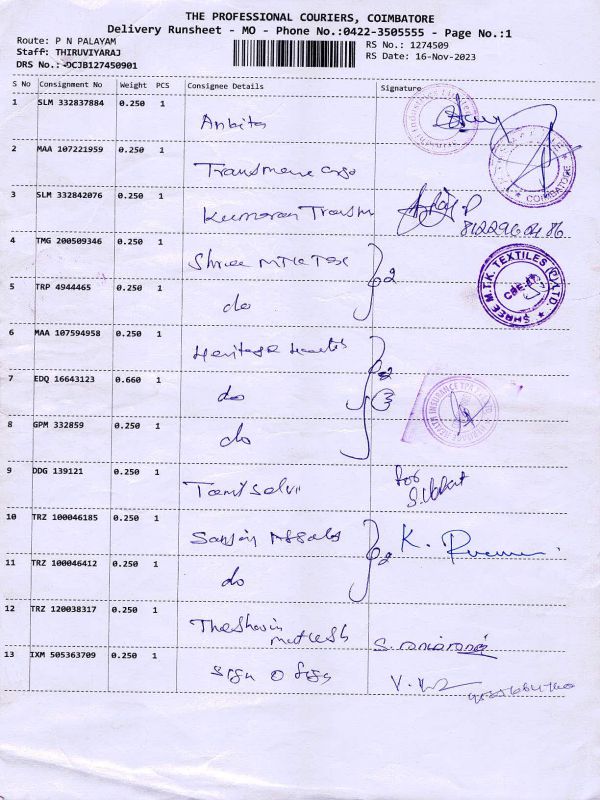 THE PROFESSIONAL COURIERS, COIMBATORE
Delivery Runsheet - MO - Phone No.:0422-3505555 - Page No.:1
Route: P N PALAYAM
RS No.: 1274509
Staff: THIRUVIYARAJ
RS Date: 16-Nov-2023
DRS No.: DCJB127450901
S No Consignment No Weight PCS Consignee Details Signature
1 SLM 332837884 0.250 1
2 MAA 107221959 0.250 1
3 SLM 332842076 0.250 1 Kumaran
4 TMG 200509346 0.250 1 Shree MTK Tex
SHREE M.T.K. TEXTILES (P) LTD. CBE
5 TRP 4944465 0.250 1 do
6 MAA 107594958 0.250 1
7 EDQ 16643123 0.660 1 do
8 GPM 332859 0.250 1 do
9 DDG 139121 0.250 1 Tamilselvi for
10 TRZ 100046185 0.250 1 K.
11 TRZ 100046412 0.250 1 do
12 TRZ 120038317 0.250 1
13 IXM 505363709 0.250 1 Sign O Sign
COIMBATORE